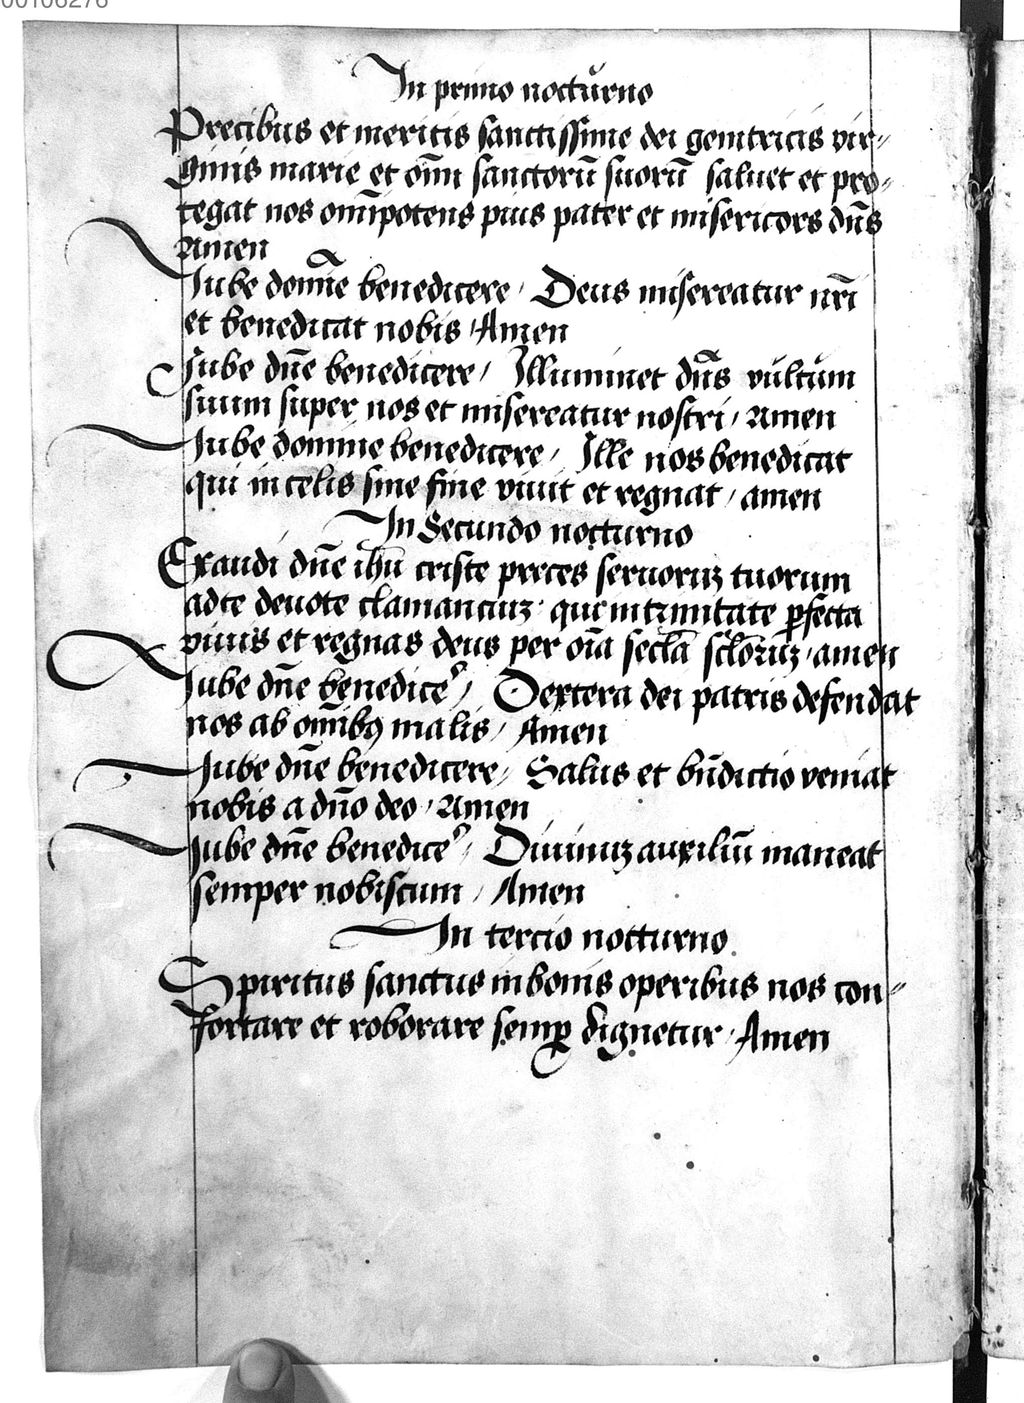 00106276
In primo nocturno
Precibus et meritis sanctissime dei genitricis vir-
ginis marie et om̅n sanctoru̅ suoru̅ saluet et pro-
tegat nos om̅ipotens pius pater et misericors dn̅s
Amen
Iube domi̅e benedicere / Deus misereatur nr̅i
et benedicat nobis / Amen
Iube dn̅e benedicere / Illuminet dn̅s vultum
suum super nos et misereatur nostri / Amen
Iube domine benedicere / Ille nos benedicat
qui in celis sine fine viuit et regnat / amen
In Secundo nocturno
Exaudi dn̅e ihu̅ criste preces seruoruꝫ tuorum
ad te deuote clamanciuꝫ · qui in trinitate ꝑfecta
viuis et regnas deus per oi̅a secl̅a scl̅oruꝫ · amen
Iube dn̅e benediceᷣ / Dextera dei patris defendat
nos ab om̅ibꝰ malis / Amen
Iube dn̅e benedicere / Salus et bn̅dictio veniat
nobis a dn̅o deo / Amen
Iube dn̅e benediceᷣ / Diuinuꝫ auxiliu̅ maneat
semper nobiscum / Amen
In tercio nocturno
Spiritus sanctus in bonis operibus nos con-
fortare et roborare semꝑ dignetur / Amen